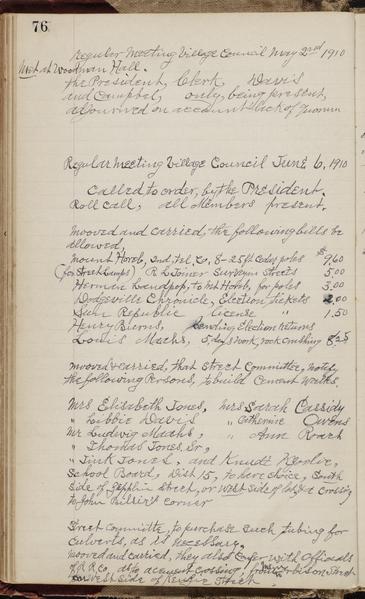 76
Regular Meeting Village Council May 2nd 1910
Met at Woodman Hall.
the President, Clerk, Davis
and Campbel, only, being present,
adjourned on account of lack of Quorum
Regular Meeting Village Council June 6, 1910
Called to order, by the President.
Roll call, all Members present.
mooved and carried, the following bills be
allowed,
Mount Horeb, Ind. tel. Co, 8-25 ft Cedar poles $9.60
(for Street Lamps) R L Joiner Surveyin Streets 5,00
Herman to Mt Horeb, for poles 3.00
Dodgeville Chronicle, Election Tickets 2.00
Sun Republic license " 1.50
Henry Election returns
Louis Machs, 5 days work, rock crushing 8.25
mooved & carried, that Street Committee, notify
the following Persons, to build Cement walks.
Mrs Elisabeth Jones, Mrs Sarah Cassidy
" Libbie Davis " Catherine Owens
Mr Ludwig Machs, " Ann Roach
" Thomas Jones, Sr,
" Jones, and Knudt
School Board, Dist 15, to here choice, South
Side of Street, or West Side of crossing
to John corner
Street Committe, to purchase such tubing for
culverts, as is necessary.
mooved and carried, they also with Officials
of R R Co, as to cement crossing, Street
West Side of Street